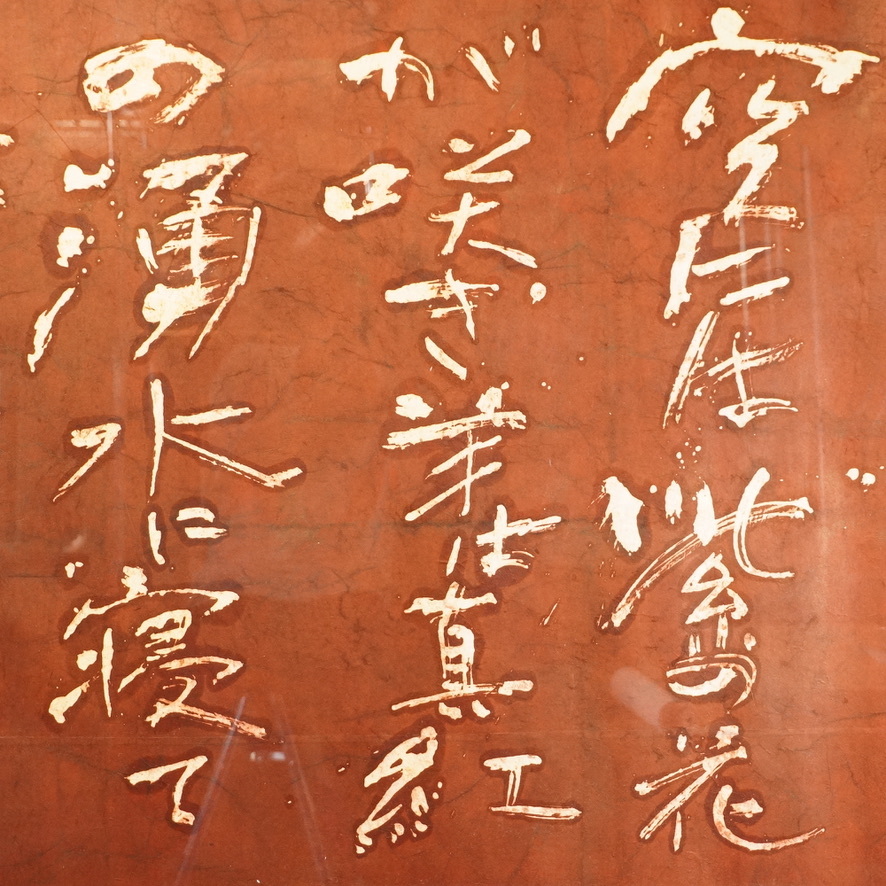 空には紫の花
が咲き羊は真紅
の渾水に寝て